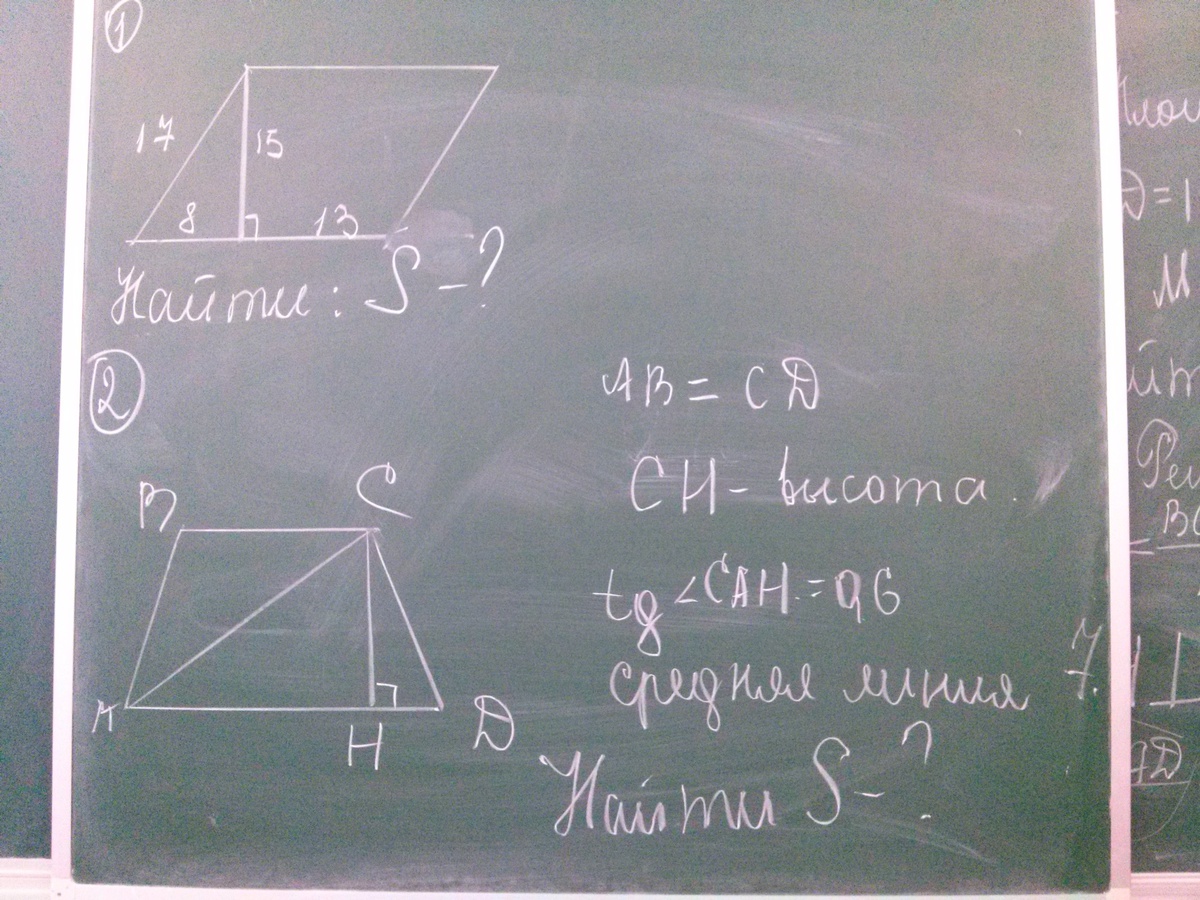 ①
17
15
8
13
Найти: S -?
②
B C
A H D
AB = CD
CH - высота
tg ∠CAH = 0,6
средняя линия 7.
Найти S - ?
D = 1
M
BC
AD